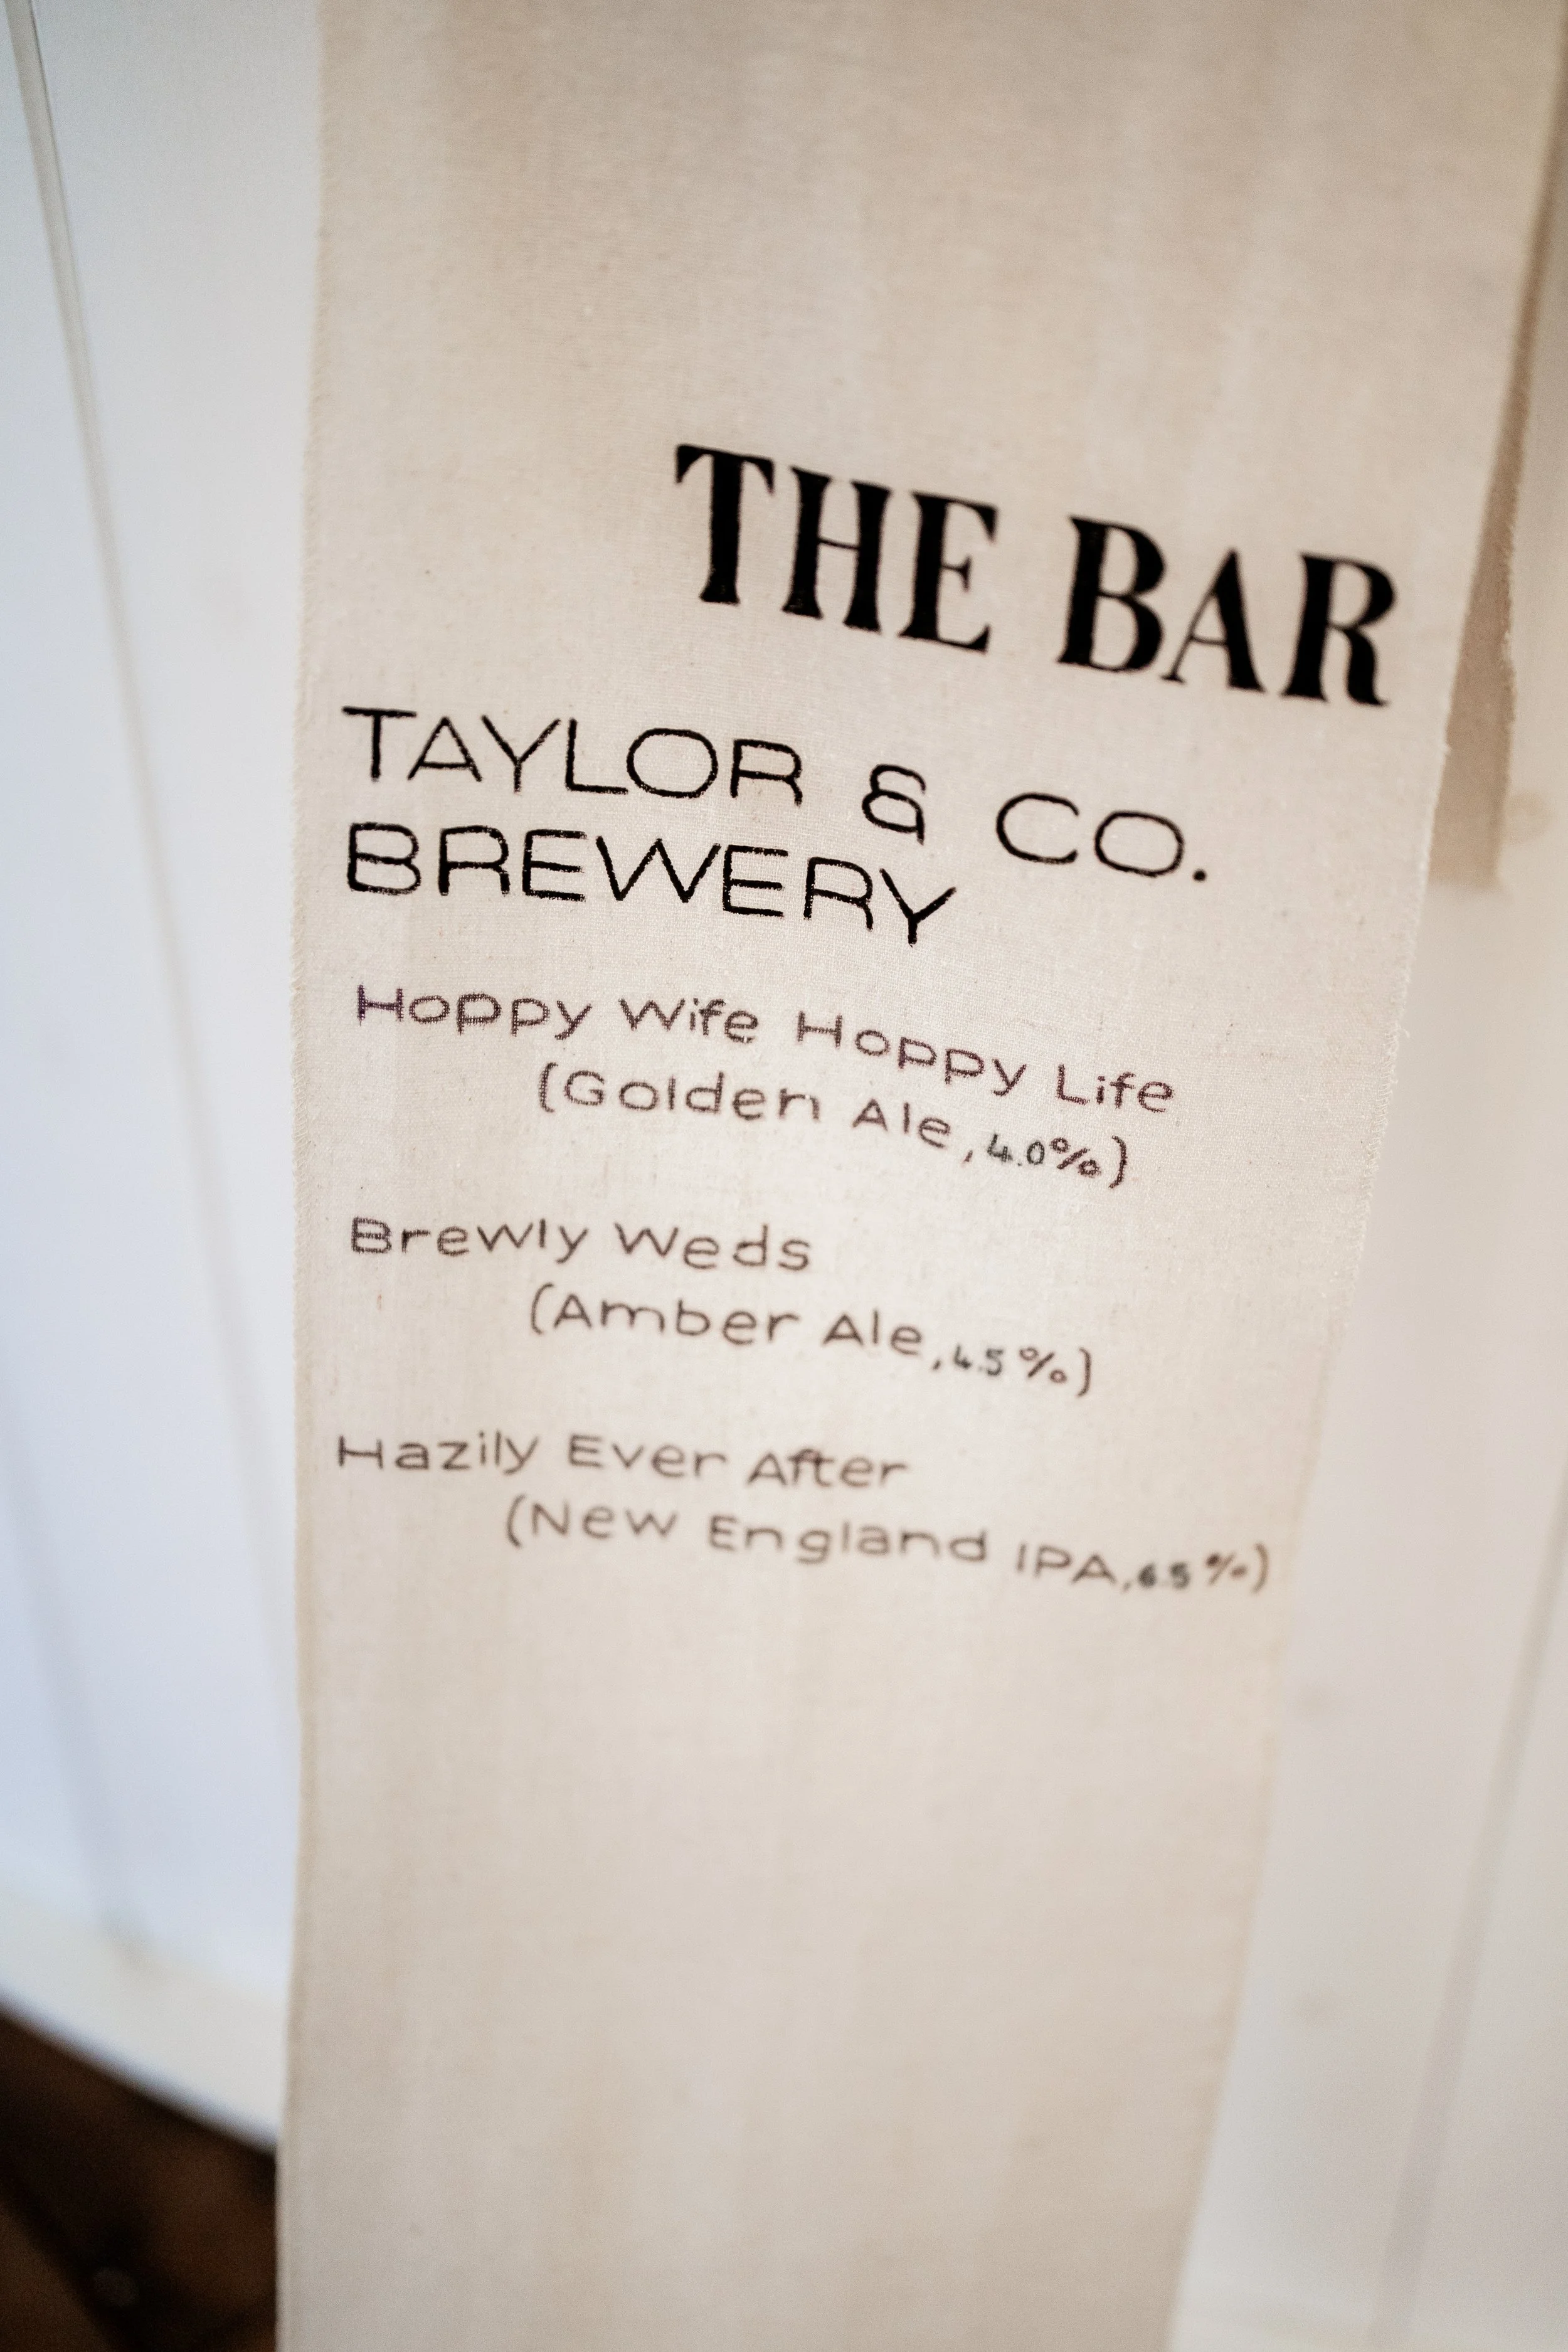 THE BAR
TAYLOR & CO.
BREWERY
Hoppy Wife Hoppy Life
(Golden Ale, 4.0%)
Brewly Weds
(Amber Ale, 4.5%)
Hazily Ever After
(New England IPA, 6.5%)